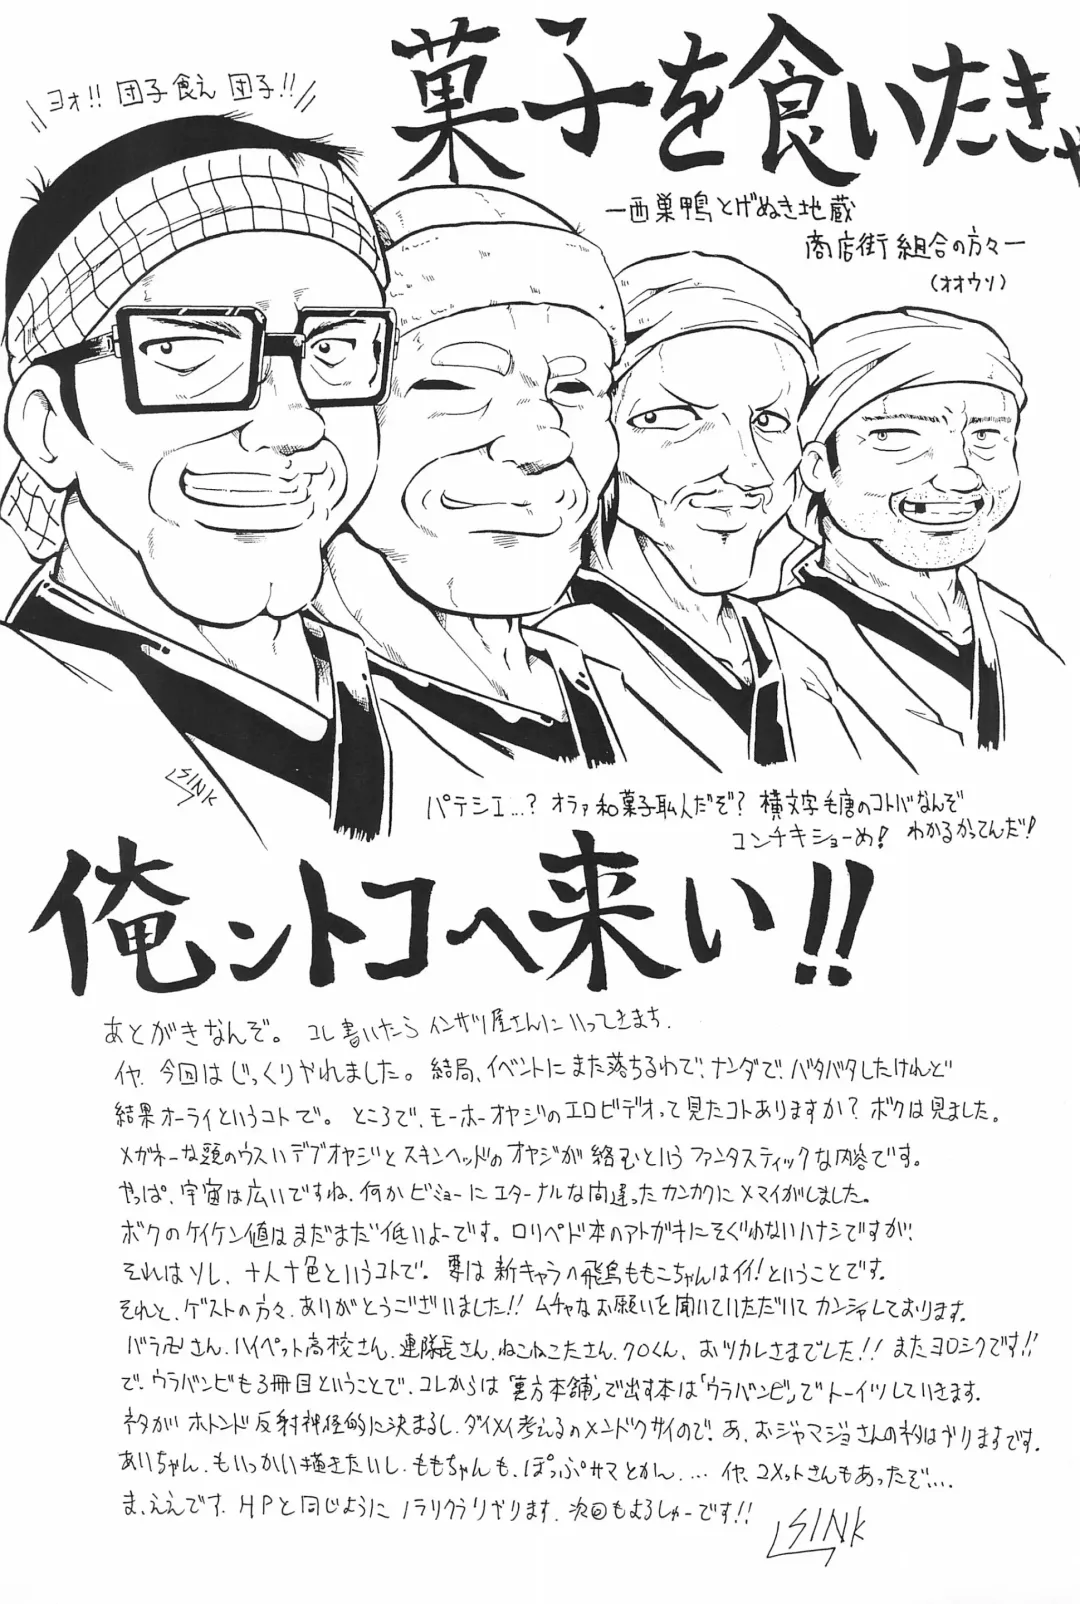 ヨォ!! 団子食え 団子!!
菓子を食いたきゃ
ー西巣鴨とげぬき地蔵
商店街組合の方々ー
(オオウソ)
SINK
パテシエ…? オラァ和菓子職人だぞ? 横文字毛唐のコトバなんぞ
コンチキショーめ! わかるかってんだ!
俺ントコへ来い!!
あとがきなんぞ。 コレ書いたらインサツ屋さんにいってきます.
イヤ. 今回はじっくりやれました。 結局、イベントにまた落ちるわで、ナンダで、バタバタしたけれど
結果オーライというコトで。 ところで、モーホーオヤジのエロビデオって見たコトありますか? ボクは見ました。
メガネーな頭のウスいデブオヤジとスキンヘッドのオヤジが絡むというファンタスティックな内容です。
やっぱ、宇宙は広いですね、何かビミョーにエターナルな間違ったカンカクにメマイがしました。
ボクのケイケン値はまだまだ低いよーです。ロリペド本のアトガキにそぐわないハナシですが、
それはソレ、十人十色というコトで。 要は新キャラの飛鳥ももこちゃんはイイ!ということです。
それと、ゲストの方々、ありがとうございました!! ムチャなお願いを聞いていただいてカンシャしております。
バラさん、ハイペット高校さん、連隊長さん、ねこねこたさん、クロくん、おツカレさまでした!! またヨロシクです!!
で、ウラバンビも3冊目ということで、コレからは「裏方本舗」で出す本は「ウラバンビ」でトーイツしていきます。
ネタがホトンド反射神経的に決まるし、ダイメイ考えるのメンドクサイので。あ、おジャマジョさんのネタはやりますです。
あいちゃん、もいっかい描きたいし、ももちゃんも、ぽっぷサマとかん、… イヤ、コメットさんもあったぞ…。
ま、ええです. HPと同じようにノラリクラリやります. 次回もよろしゅーです!!
SINK